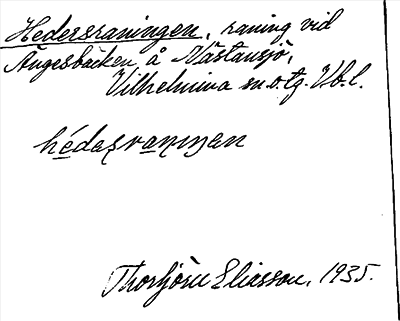 Hedersraningen, raning vid
Ängesbäcken å Nästansjö,
Vilhelmina sn o. tg. Vb. l.
hédasranıŋan
Thorbjörn Eliasson, 1935.